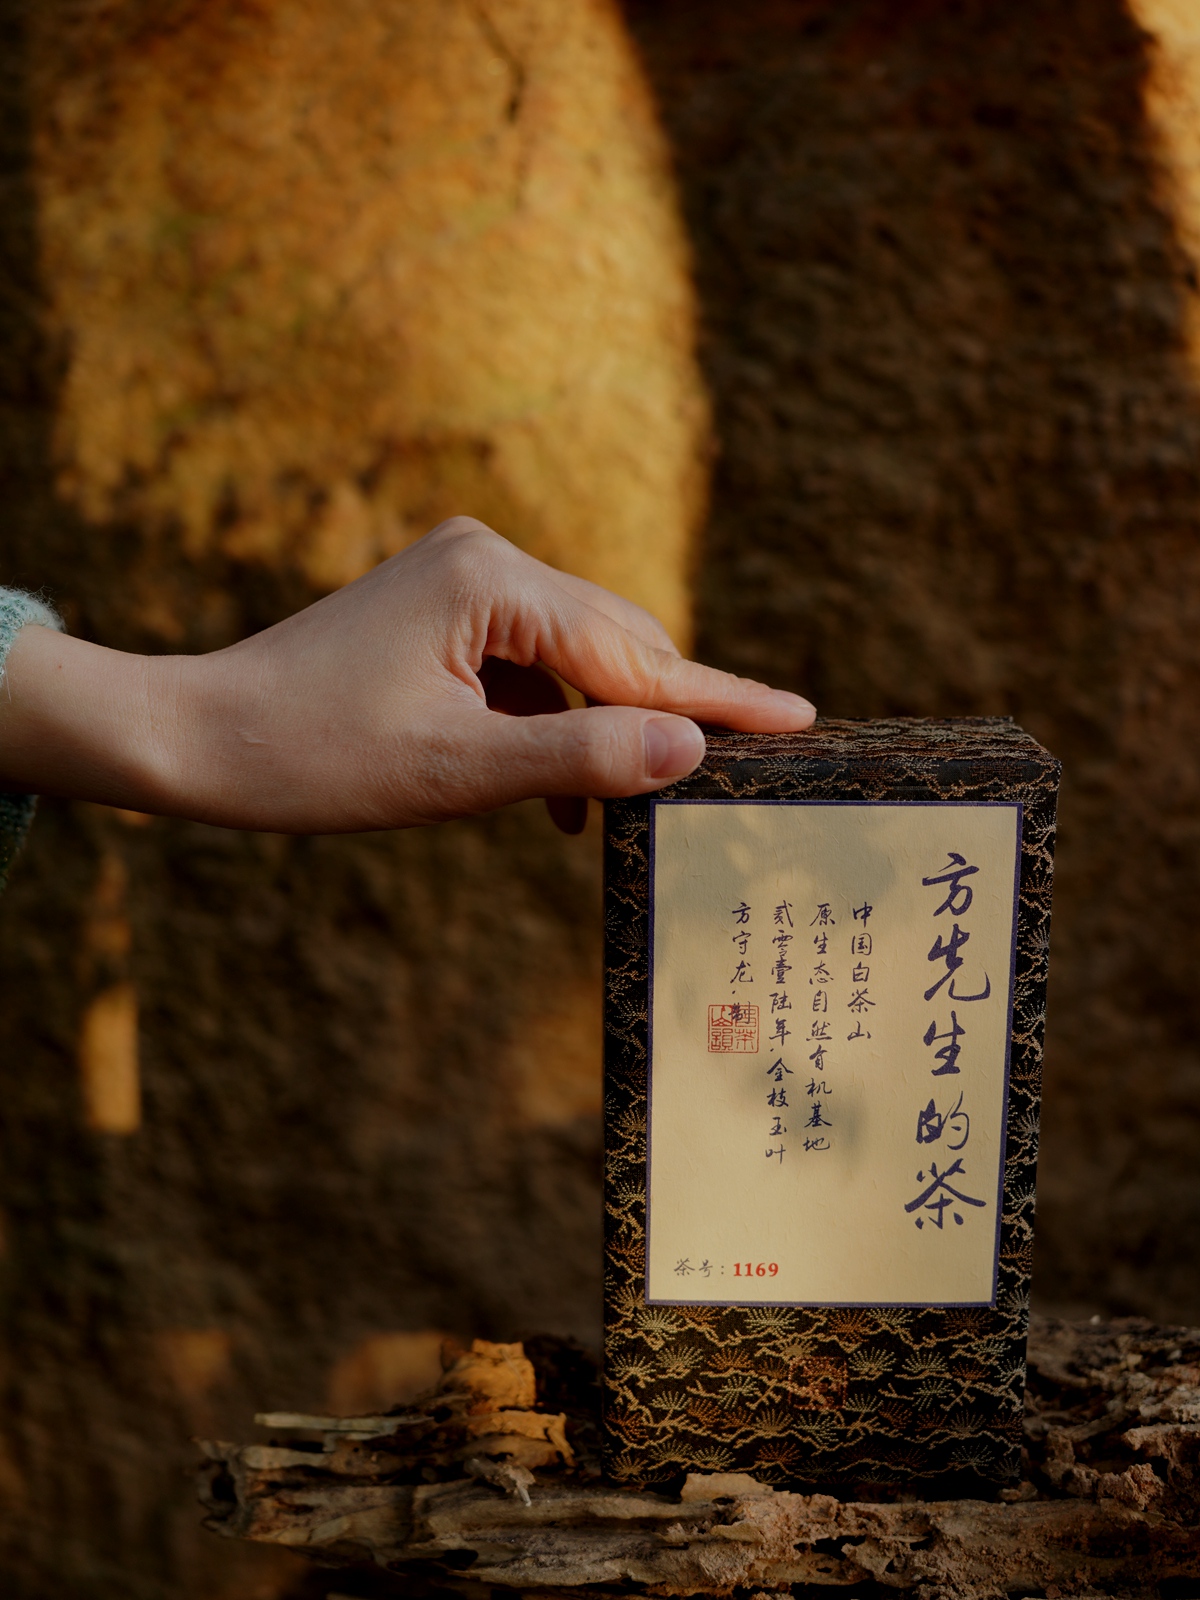 方先生的茶
中国白茶山
原生态自然有机基地
贰零壹陆年·金枝玉叶
方守龙·制
茶号：1169